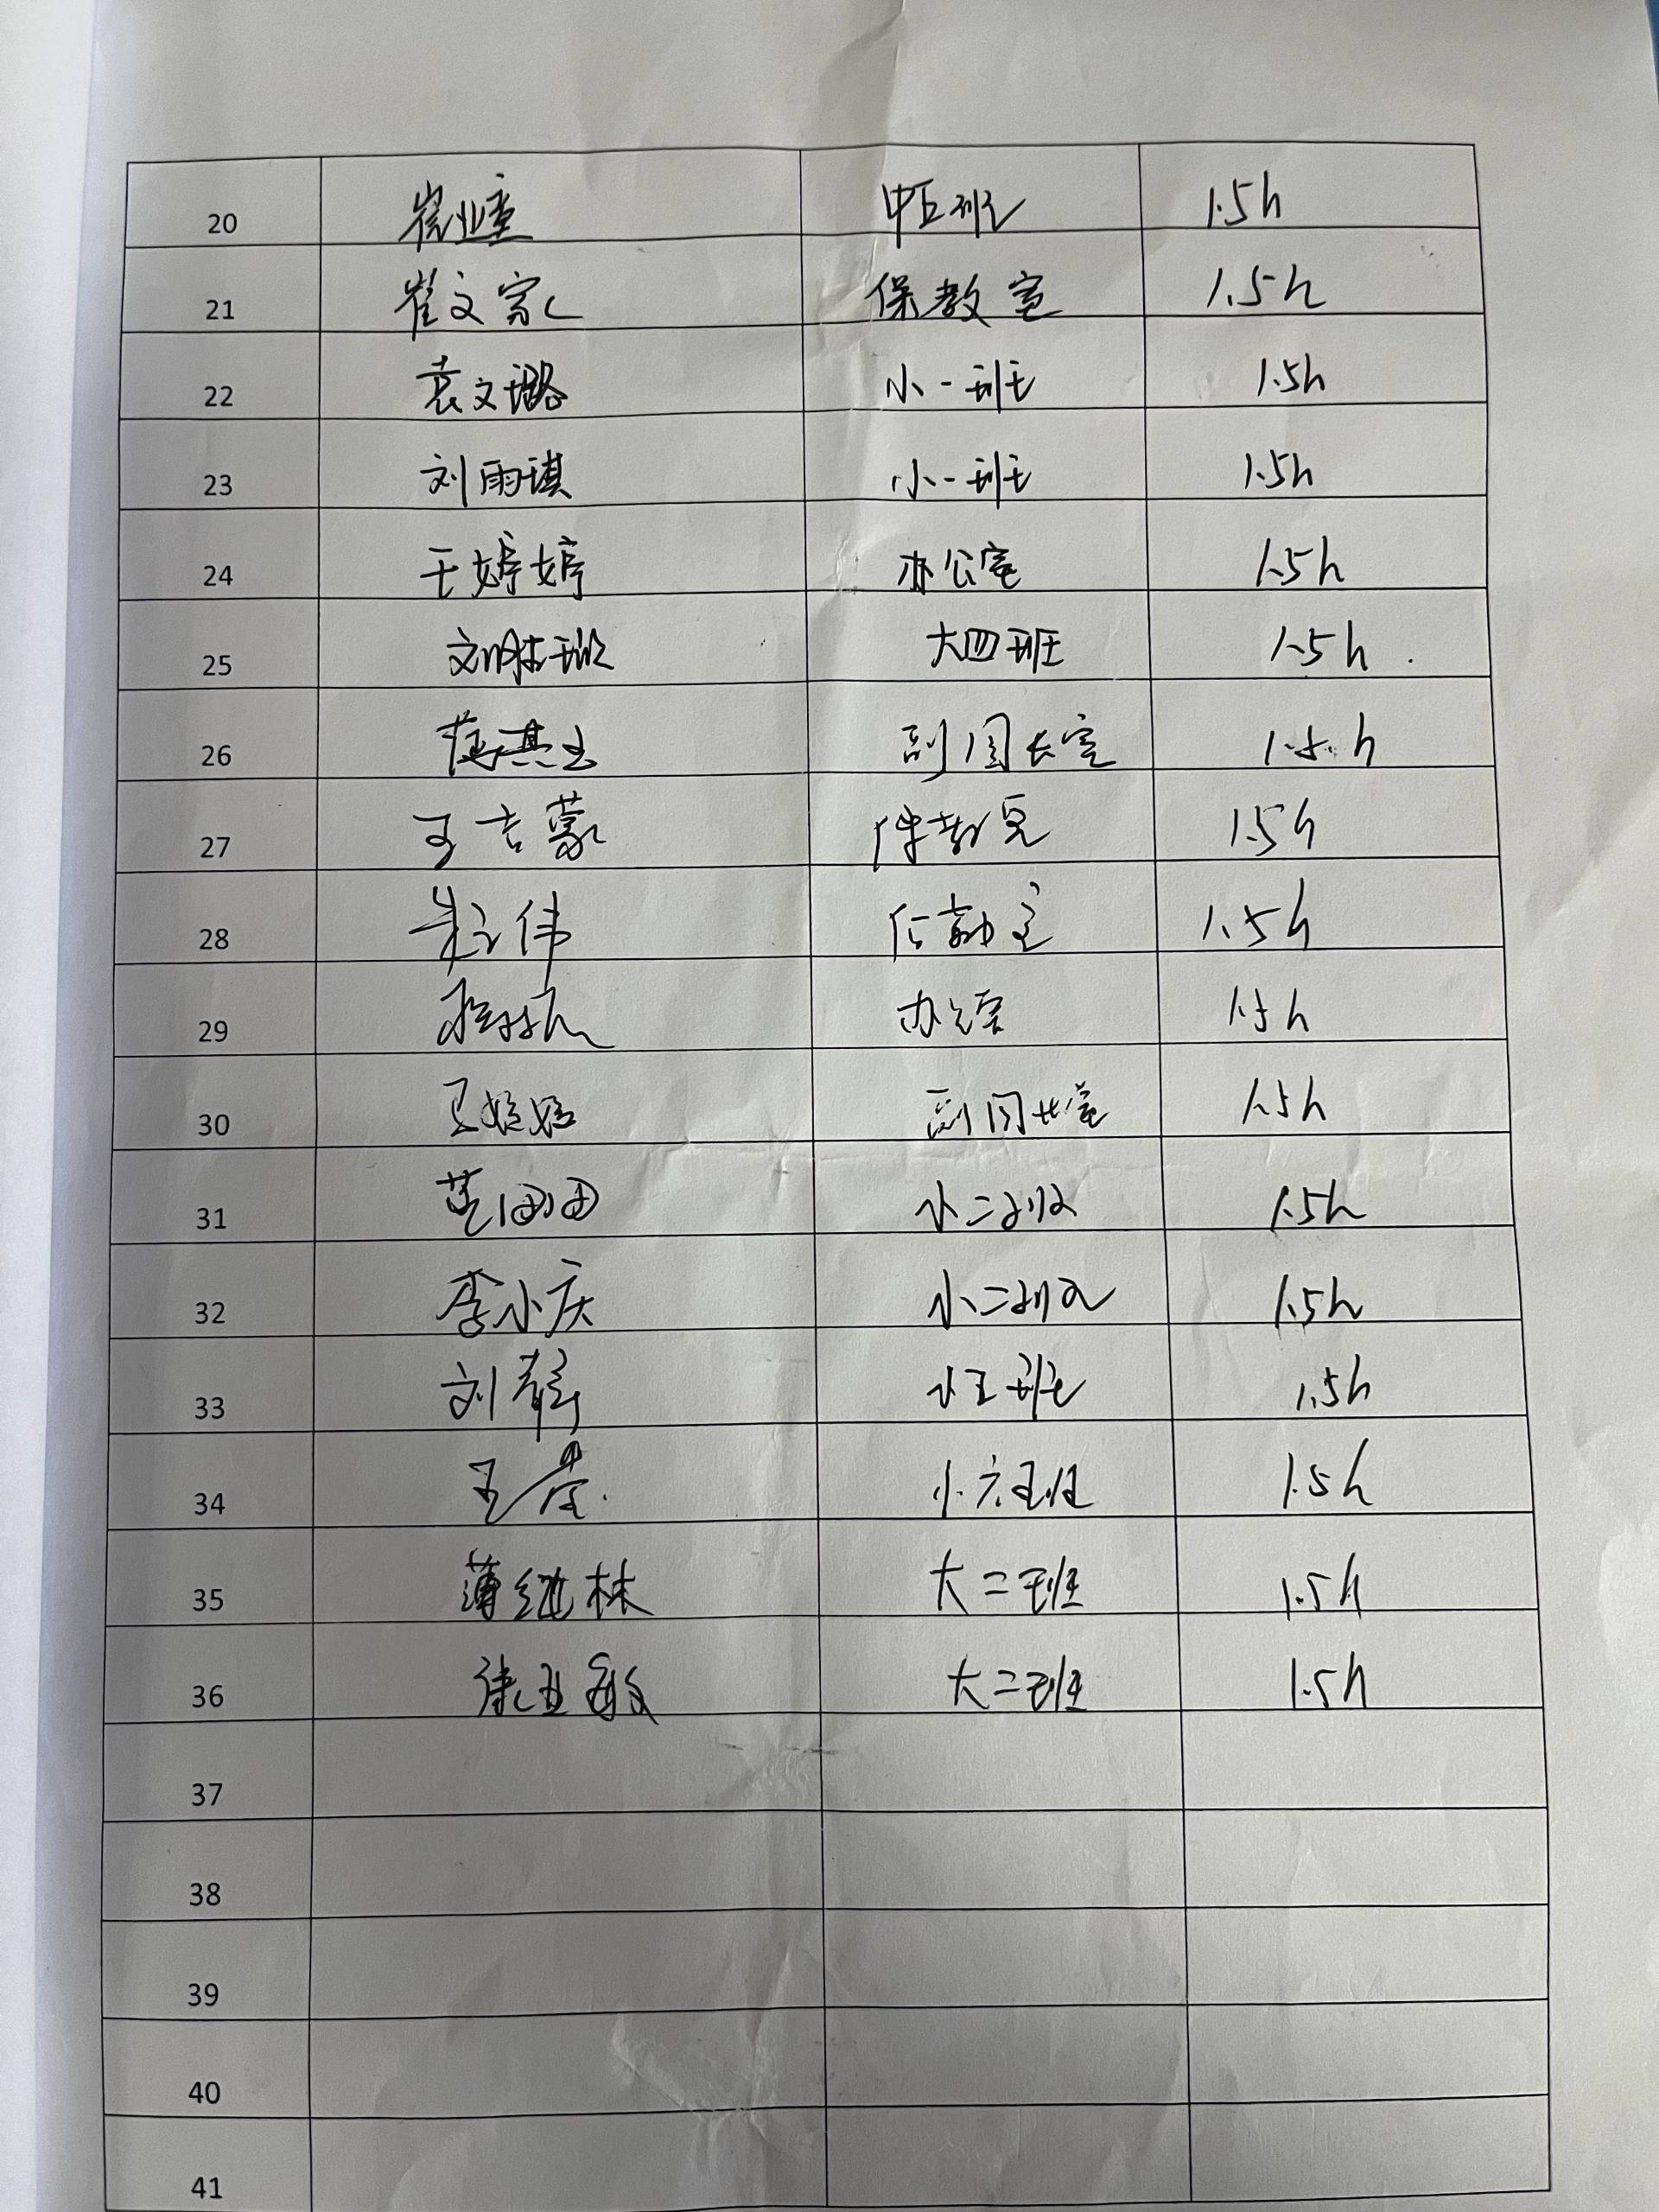 20 中五班 1.5h
21 崔文 保教室 1.5h
22 袁文璐 小一班 1.5h
23 刘雨琪 小一班 1.5h
24 王婷婷 办公室 1.5h
25 大四班 1.5h
26 副园长室 1.5h
27 王吉蒙 保教室 1.5h
28 伟 后勤室 1.5h
29 办公室 1.5h
30 王 副园长室 1.5h
31 田田 小二班 1.5h
32 李小庆 小二班 1.5h
33 刘静 小五班 1.5h
34 王 小六班 1.5h
35 薄继林 大二班 1.5h
36 大二班 1.5h
37
38
39
40
41